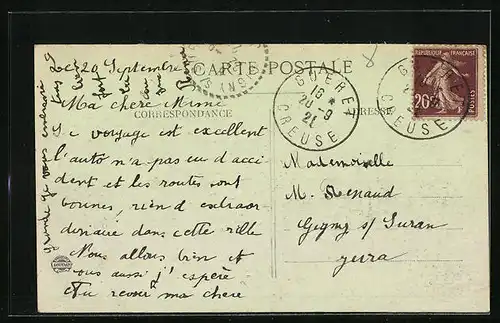 CARTE POSTALE
CORRESPONDANCE
ADRESSE
Le 20 Septembre
Ma chere Mimi
Le voyage est excellent
l'auto n'a pas eu d'acci
dent et les routes sont
bonnes, rien d'extraor
dinaire dans cette ville
Nous allons bien et
vous aussi j'espère
Au revoir ma chere
GUERET
16 *
20-9
21
CREUSE
REPUBLIQUE FRANÇAISE
20c
POSTES
CREUSE
Mademoiselle
M. Renaud
Gigny s/ Suran
Jura